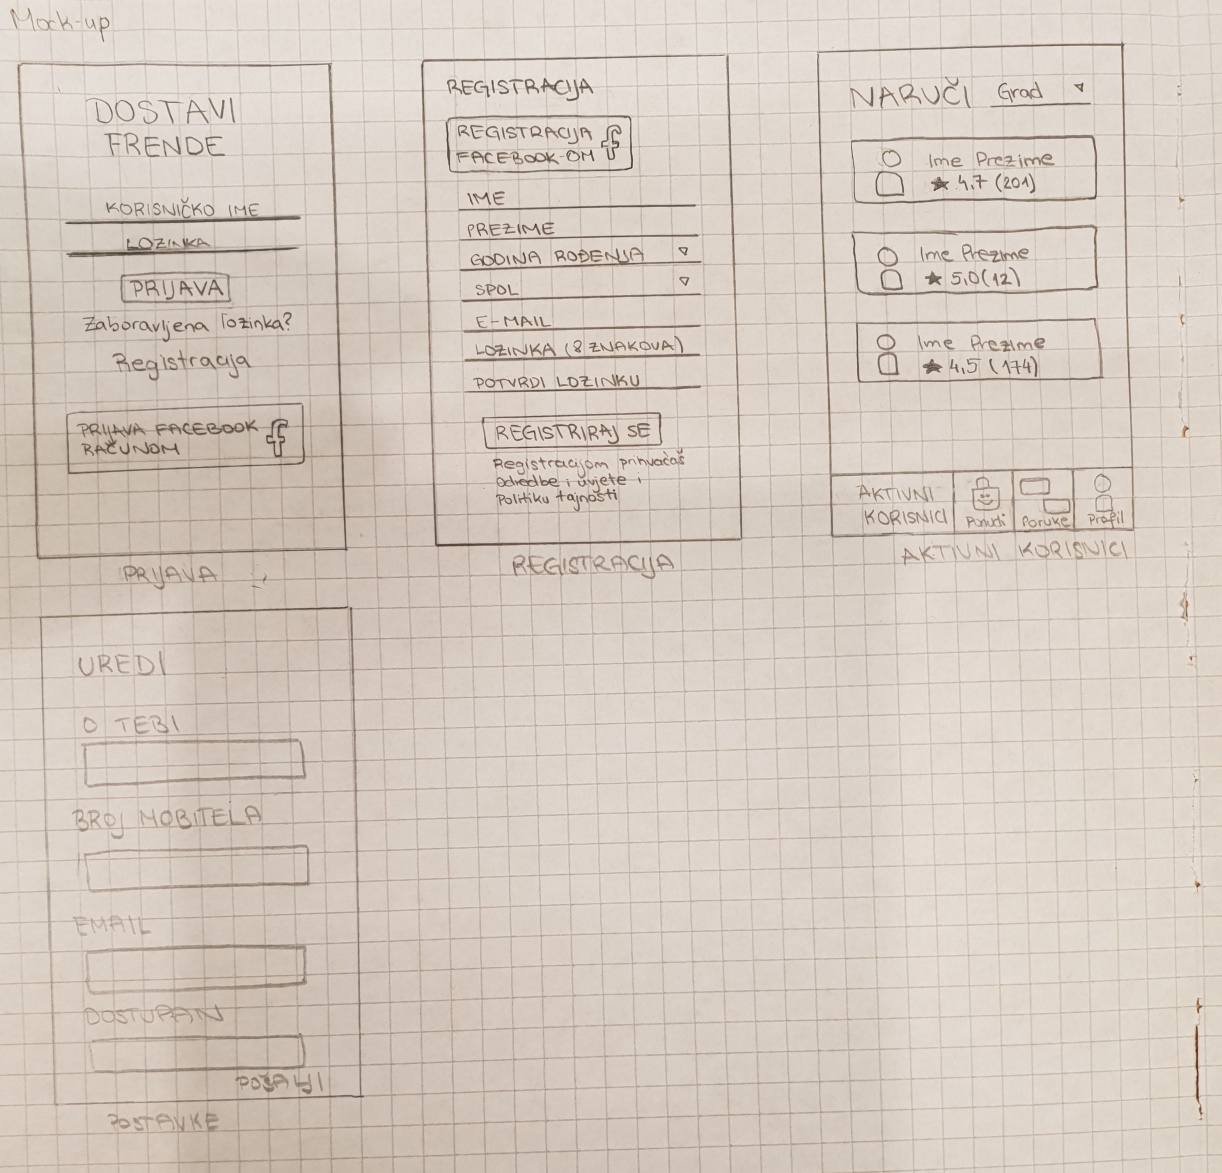 Mock-up
DOSTAVI
FRENDE
KORISNIČKO IME
LOZINKA
PRIJAVA
Zaboravljena lozinka?
Registracija
PRIJAVA FACEBOOK
RAČUNOM
PRIJAVA
REGISTRACIJA
REGISTRACIJA
FACEBOOK-OM
IME
PREZIME
GODINA ROĐENJA
SPOL
E-MAIL
LOZINKA (8 ZNAKOVA)
POTVRDI LOZINKU
REGISTRIRAJ SE
Registracijom prihvaćaš
odredbe i uvjete i
Politiku tajnosti
REGISTRACIJA
NARUČI Grad
Ime Prezime
★ 4,7 (201)
Ime Prezime
★ 5,0 (12)
Ime Prezime
★ 4,5 (174)
AKTIVNI
KORISNICI
Ponudi
Poruke
Profil
AKTIVNI KORISNICI
UREDI
O TEBI
BROJ MOBITELA
EMAIL
DOSTUPAN
POSTAVKE